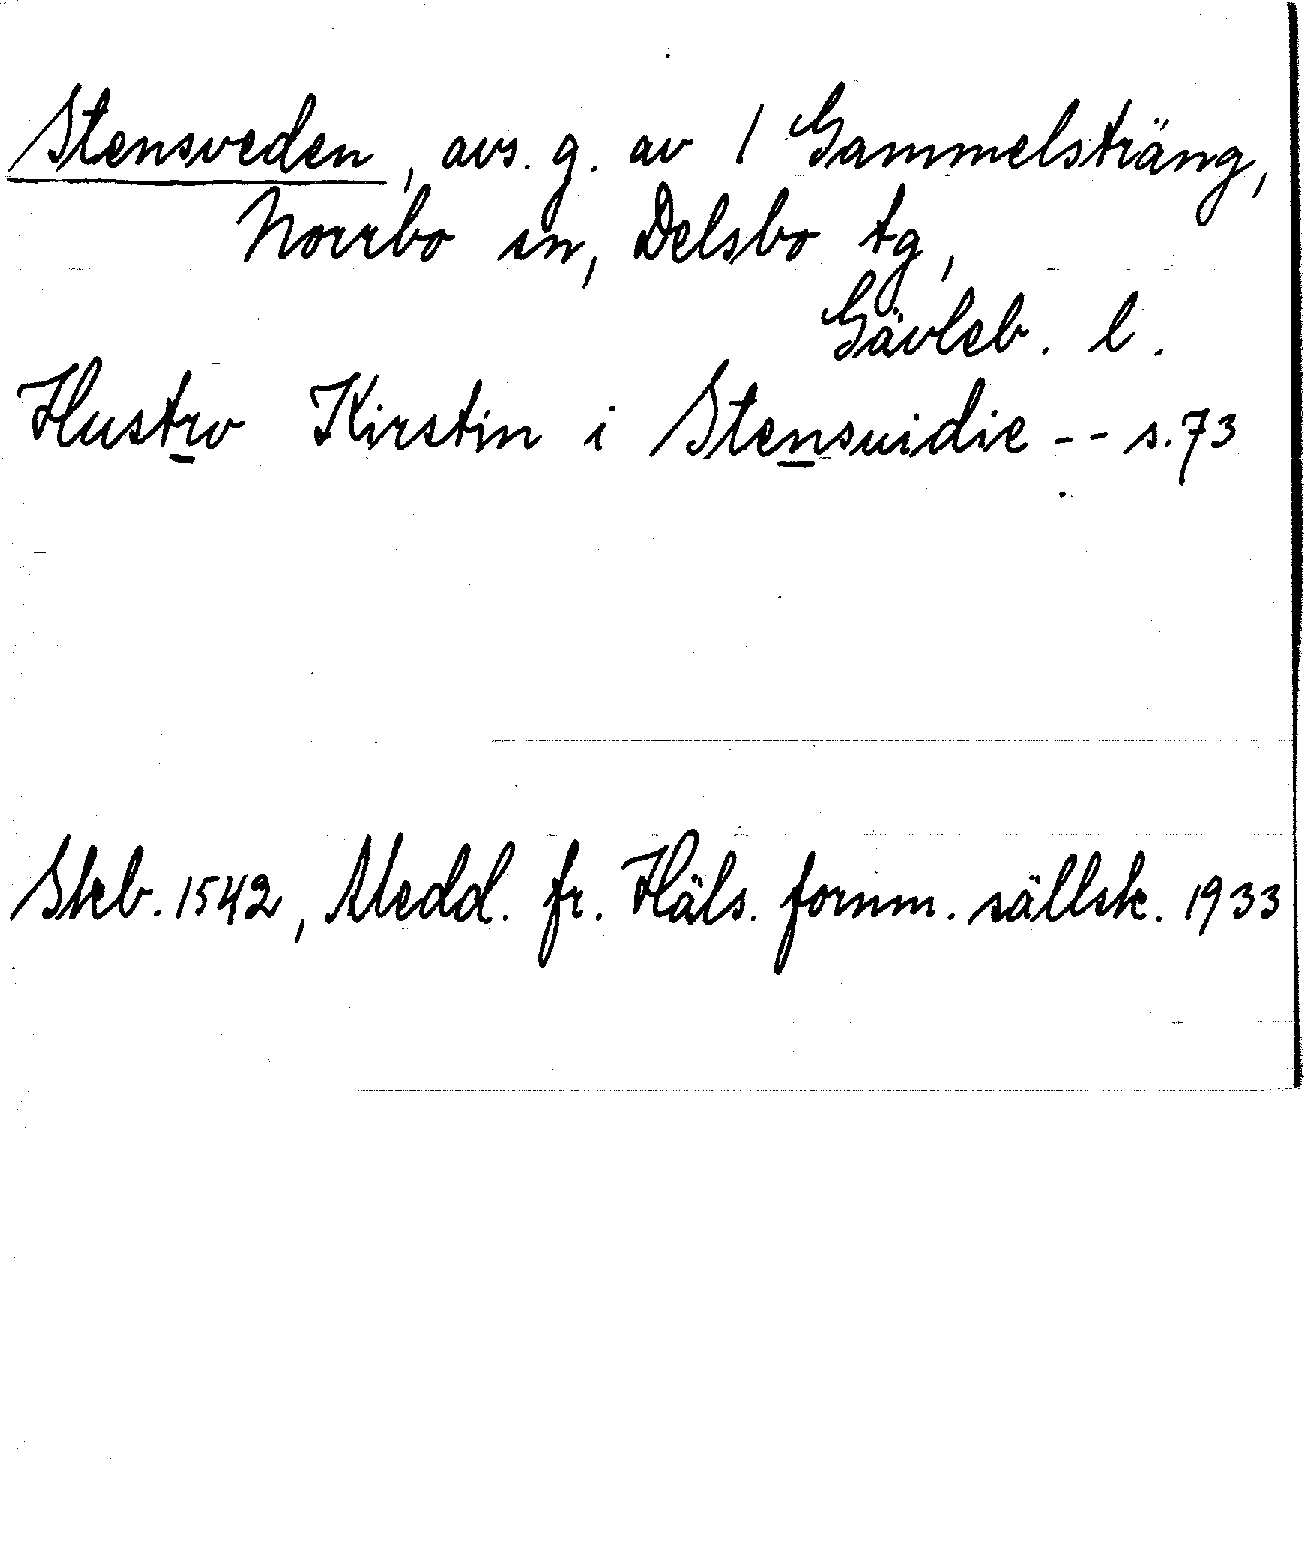 Stensveden, avs. g. av 1 Gammelsträng,
Norrbo sn, Delsbo tg,
Gävleb. l.
Hustro Kirstin i Stensuidie -- s.73
Skb. 1542, Medd. fr. Häls. fornm. sällsk. 1933